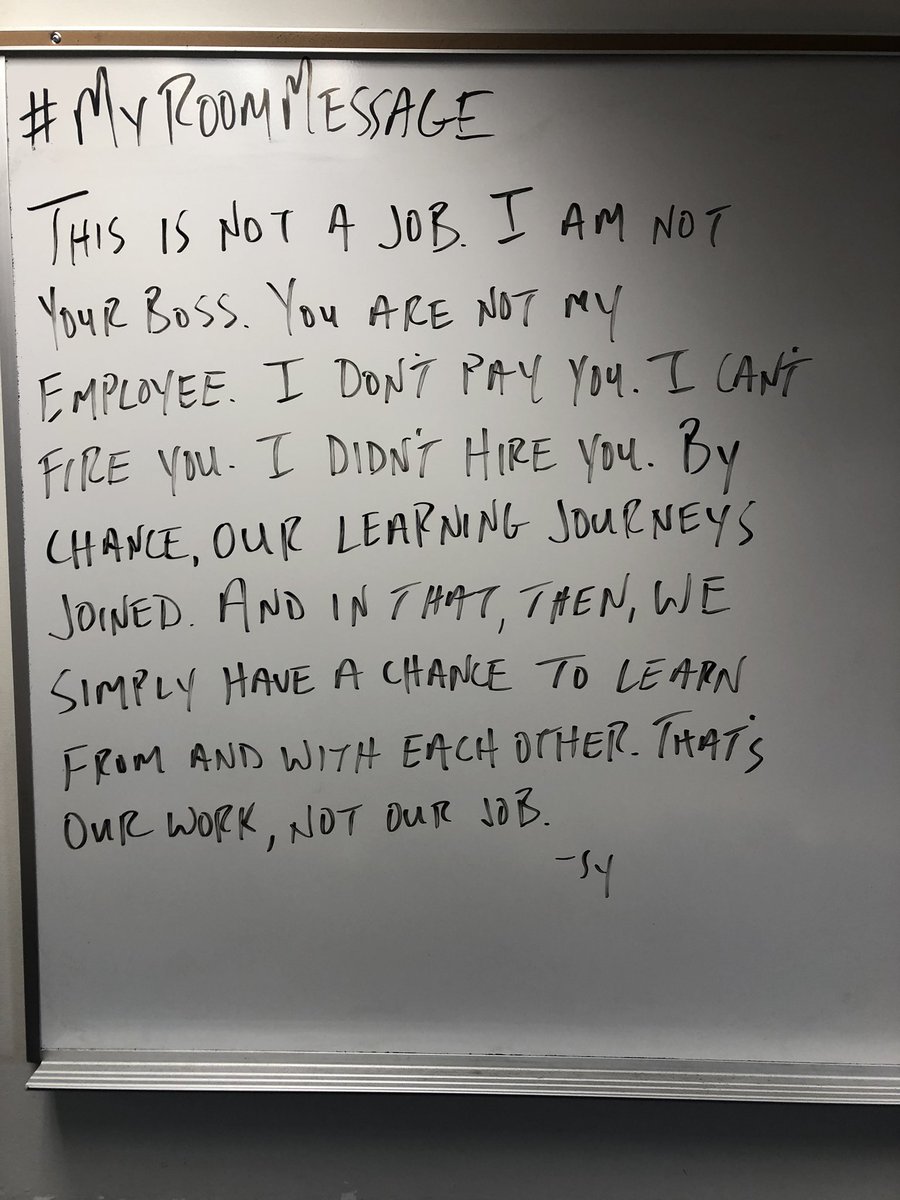 #MyRoomMessage
This is not a job. I am not
your boss. You are not my
employee. I don't pay you. I can't
fire you. I didn't hire you. By
chance, our learning journeys
joined. And in that, then, we
simply have a chance to learn
from and with each other. That's
our work, not our job.
-sy